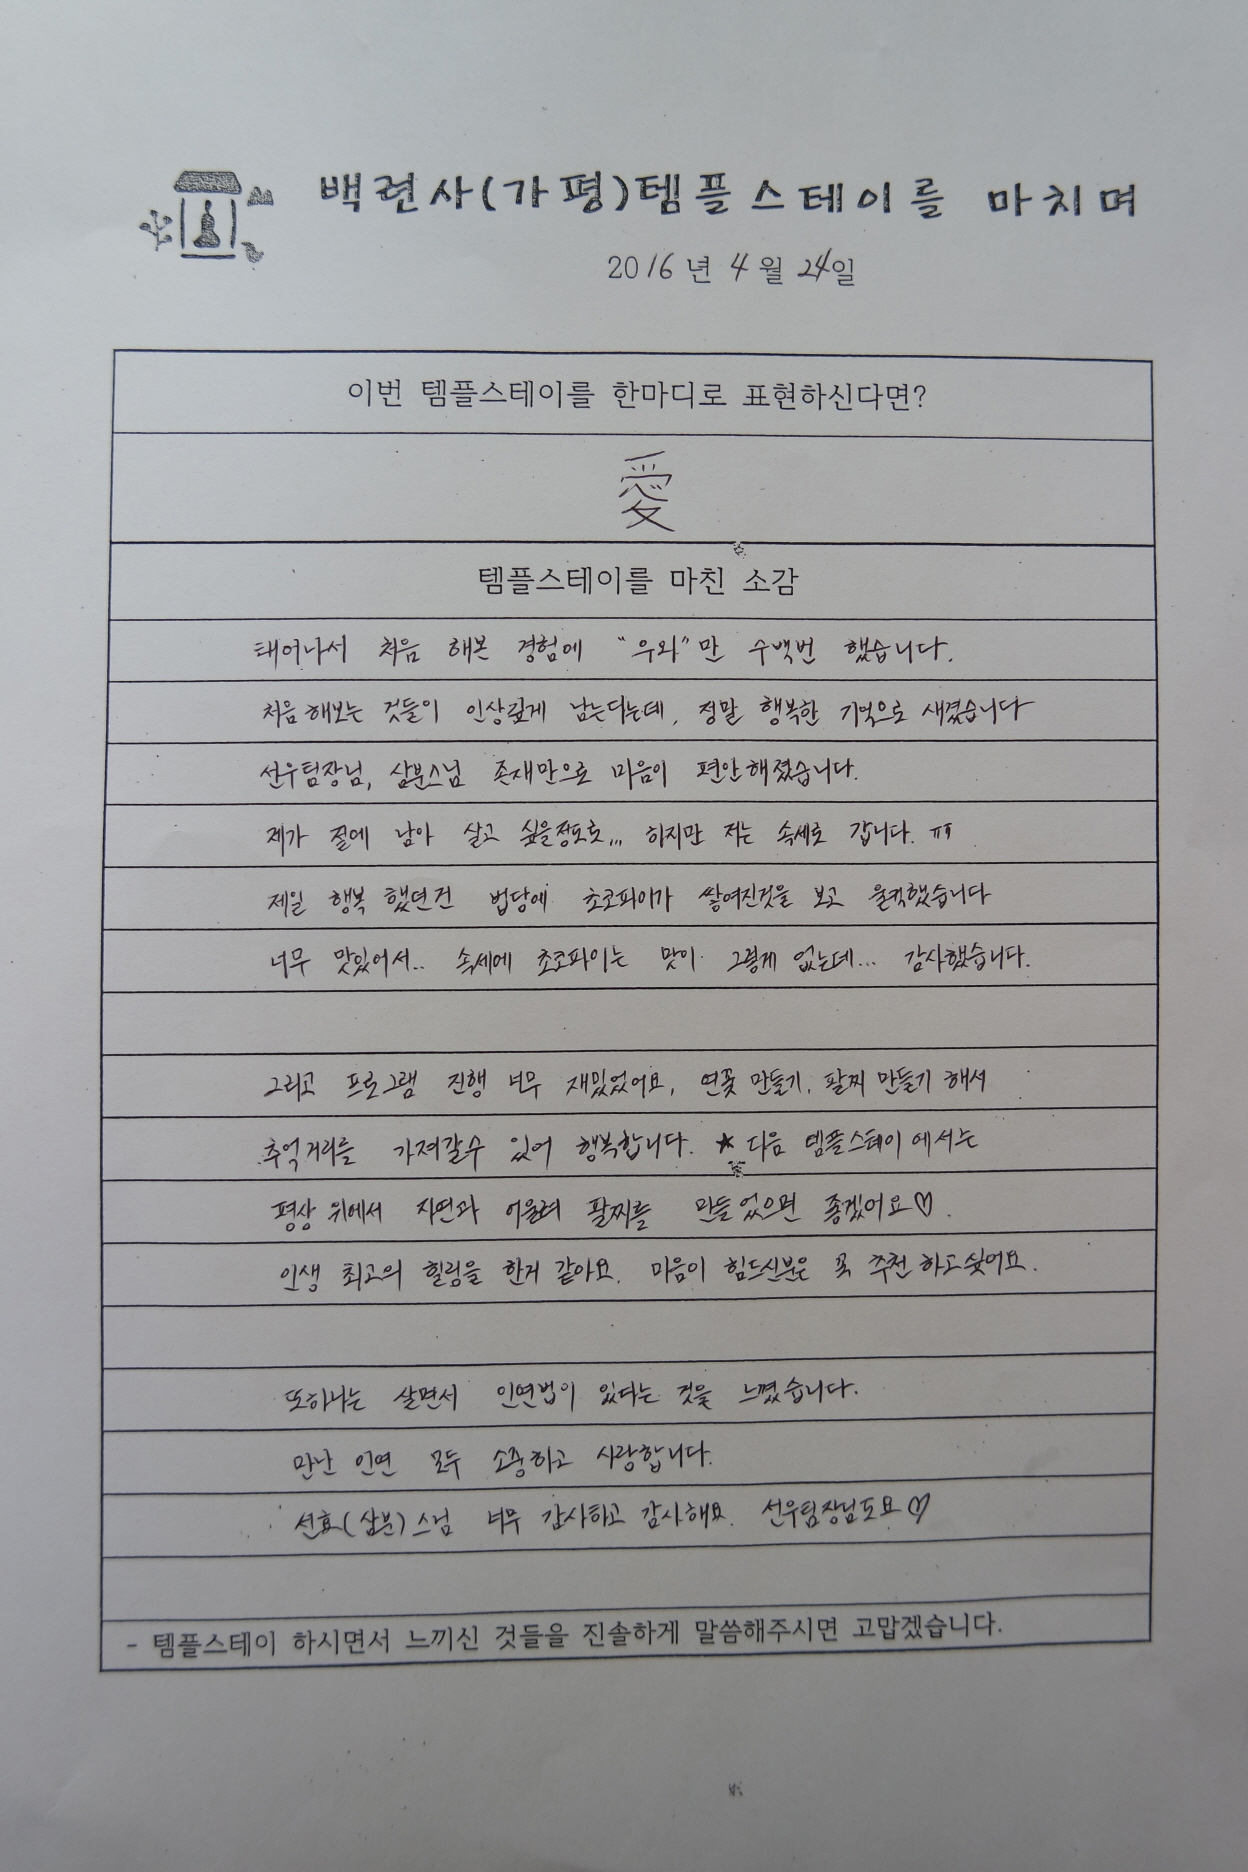 백련사(가평)템플스테이를 마치며
2016년 4월 24일
이번 템플스테이를 한마디로 표현하신다면?
愛
템플스테이를 마친 소감
태어나서 처음 해본 경험에 "우와"만 수백번 했습니다.
처음해보는 것들이 인상깊게 남는다는데, 정말 행복한 기억으로 새겼습니다
선우팀장님, 삼분스님 존재만으로 마음이 편안해졌습니다.
제가 절에 남아 살고 싶을정도로... 하지만 저는 속세로 갑니다. ㅠㅠ
제일 행복했던건 법당에 초코파이가 쌓여진것을 보고 울컥했습니다
너무 맛있어서.. 속세에 초코파이는 맛이 그렇게 없는데... 감사했습니다.
그리고 프로그램 진행 너무 재밌었어요, 연꽃 만들기, 팔찌 만들기 해서
추억거리를 가져갈수 있어 행복합니다. ★ 다음 템플스테이에서는
평상 위에서 자연과 어울려 팔찌를 만들었으면 좋겠어요♡.
인생 최고의 힐링을 한거 같아요. 마음이 힘드신분은 꼭 추천하고싶어요.
또하나는 살면서 인연법이 있다는 것을 느꼈습니다.
만난 인연 모두 소중하고 사랑합니다.
선효(삼분)스님 너무 감사하고 감사해요. 선우팀장님도요♡
- 템플스테이 하시면서 느끼신 것들을 진솔하게 말씀해주시면 고맙겠습니다.